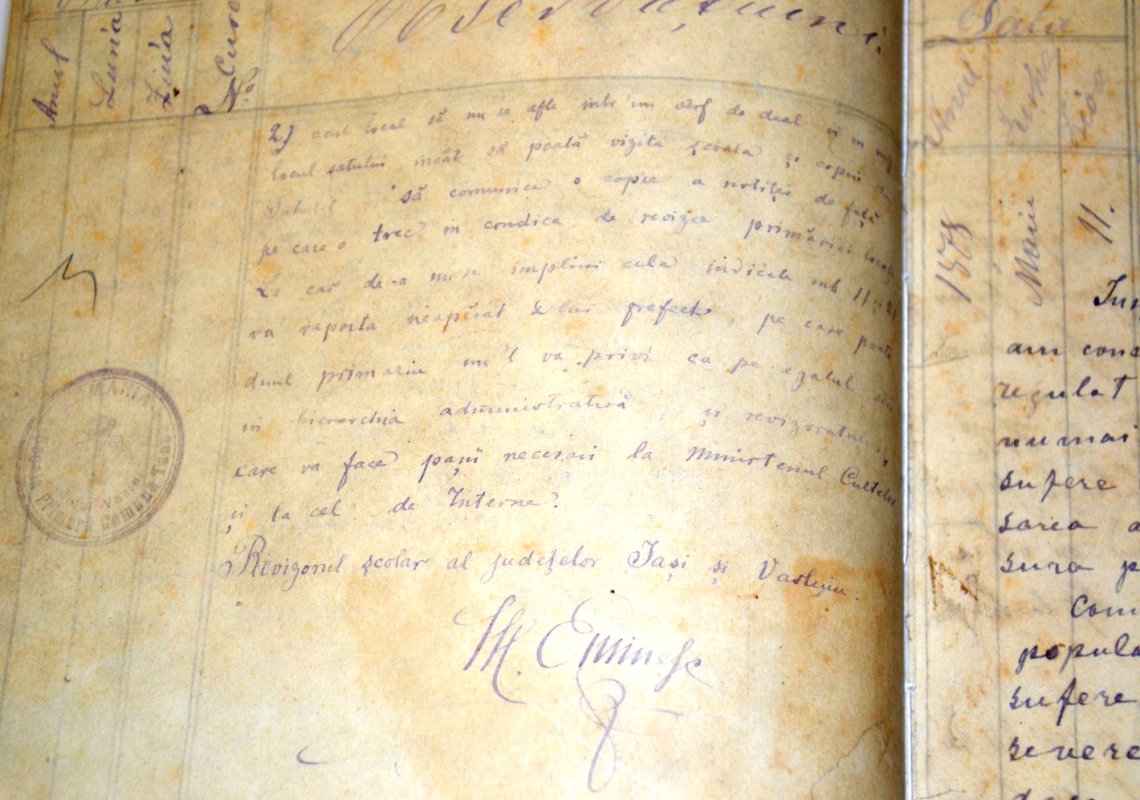 Anul
Luna
Ziua
No Curent
Observațiuni.
2) acest local să nu se afle într'un vêrf de deal și în mij
locul satului, încât să poată vizita școala și copiii din
să comunice o copie a notiței de față
pe care o trec în condica de revizie primăriei locale
că de a nu se împlini cele indicate sub 1 și 2
va raporta neapărat prefect, pe care poate
dnul primariu nu'l va privi ca pe egalul său
in hierarchia administrativă, și revizoratului,
care va face pașii necesari la Ministeriul Cultelor
și la cel de Interne?
Revizorul școlar al județelor Iași și Vasluiu.
M. Eminesc
Primări Comuna
Data
Anul
Zioa
1878
Maiu
11.
am cons
regulat
numai
sufere
sarea a
sura p
Com
popula
sufere
severe